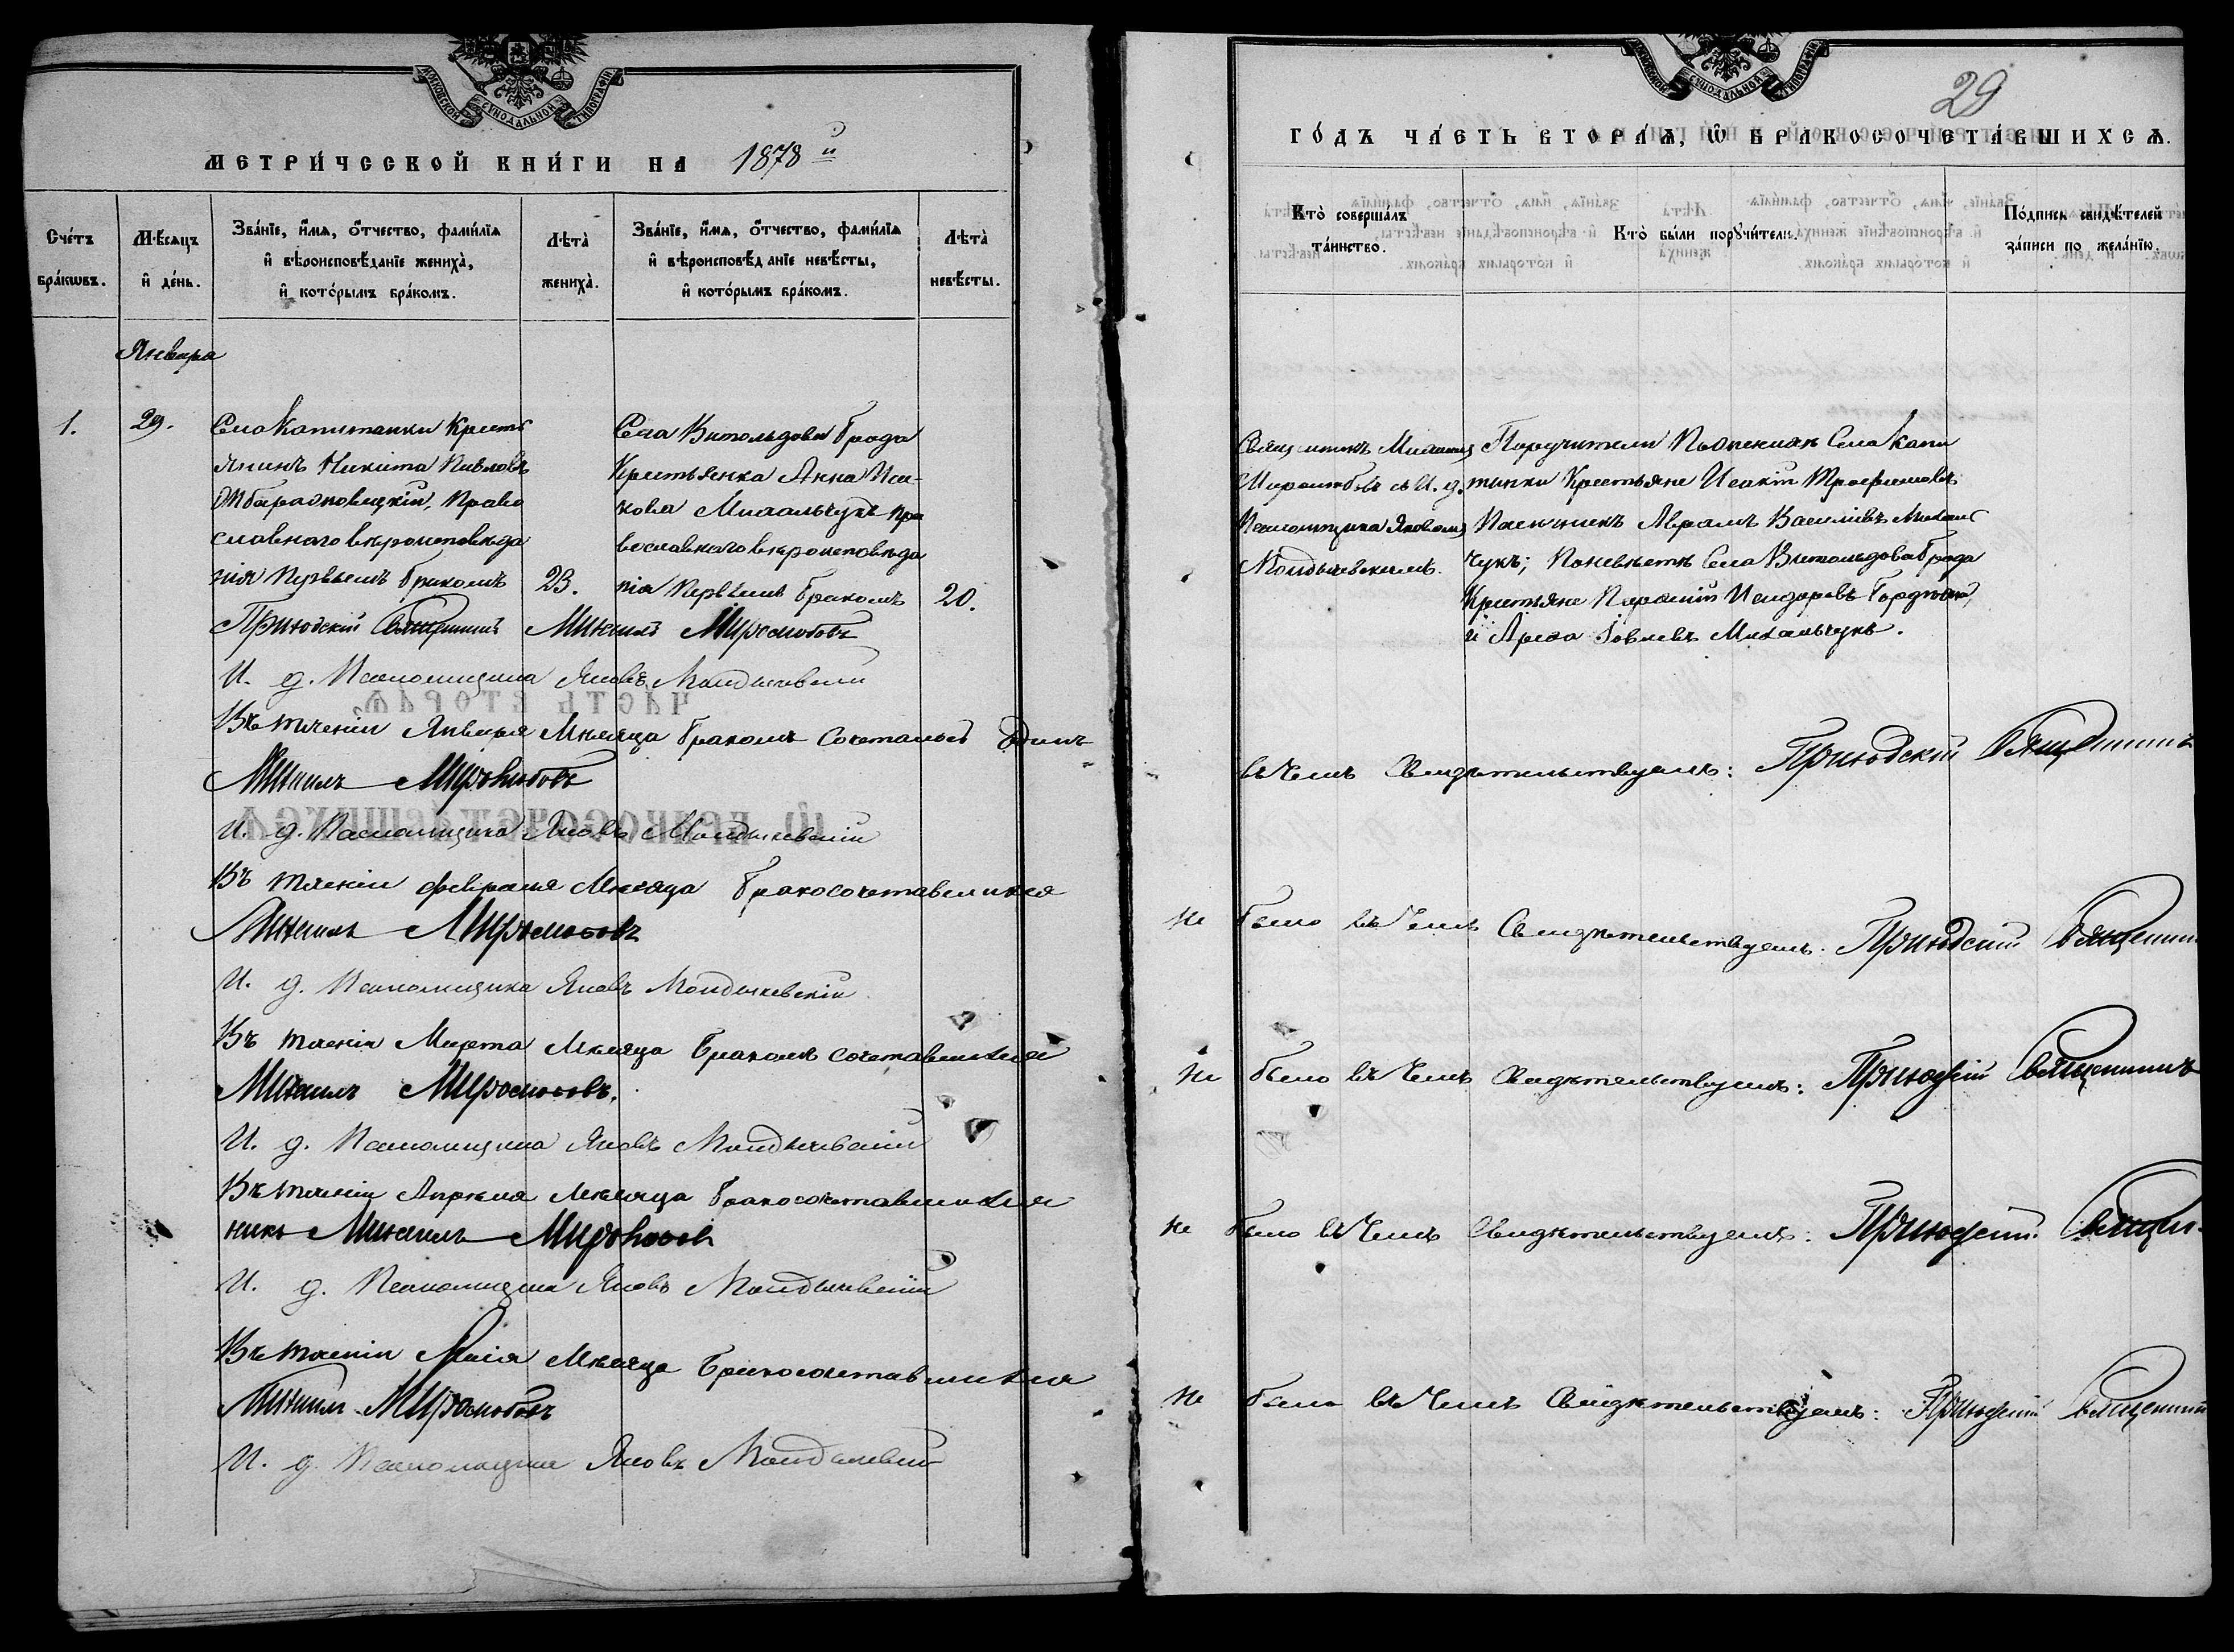 МОСКОВСКОЙ СѴНОДАЛЬНОЙ ТИПОГРАФІИ
МЕТРИ́ЧЕСКОЙ КНИ́ГИ НА 1878й
Сче́тъ бра́кѡвъ.
Мѣ́сяцъ и҆ де́нь.
Зва́нїе, и҆́мѧ, ѻ҆́тчество, фами́лїѧ
и҆ вѣроисповѣ́данїе жениха̀,
и҆ кото́рымъ бра́комъ.
Лѣта̀ жениха̀.
Зва́нїе, и҆́мѧ, ѻ҆́тчество, фами́лїѧ
и҆ вѣроисповѣ́данїе невѣ́сты,
и҆ кото́рымъ бра́комъ.
Лѣта̀ невѣ́сты.
Января
1.
29.
Села Капитанки Кресть
янинъ Никита Павловъ
Право
славнаго вѣроисповѣда
нія Первымъ бракомъ
23.
Села Витольдова Брода
Крестьянка Анна Иса-
кова Михальчукъ Пра
вославнаго вѣроисповѣда
нія Первымъ бракомъ
20.
Приходскій Священникъ Михаилъ Миролюбовъ
И. д. Псаломщика Яковъ
Въ теченіи Января Мѣсяца бракомъ Сочетались Одинъ
Михаилъ Миролюбовъ
И. д. Псаломщика Яковъ
Въ теченіи февраля Мѣсяца бракосочетавшихся
Михаилъ Миролюбовъ
И. д. Псаломщика Яковъ
Въ теченіи Марта Мѣсяца бракомъ сочетавшихся
Михаилъ Миролюбовъ.
И. д. Псаломщика Яковъ
Въ теченіи Апрѣля Мѣсяца бракосочетавшихся
никъ Михаилъ Миролюбовъ
И. д. Псаломщика Яковъ
Въ теченіи Маія Мѣсяца бракосочетавшихся
Михаилъ Миролюбовъ
И. д. Псаломщика Яковъ
МОСКОВСКОЙ СѴНОДАЛЬНОЙ ТИПОГРАФІИ
29
ГО́ДЪ ЧА́СТЬ ВТОРА́Ѧ, Ѡ҆ БРАКОСОЧЕТА́ВШИХСѦ.
Кто̀ соверша́лъ
та́инство.
Кто̀ бы́ли порꙋчи́тели.
По́дпись свидѣ́телей
за́писи по жела́нїю.
Священникъ Михаилъ
Миролюбовъ съ И. д.
Псаломщика Яковомъ
Поручители По Женихѣ Села Капи
танки Крестьяне Исакій Трофимовъ
Пасичникъ Аврамъ Василіевъ Михаль
чукъ; По невѣстѣ Села Витольдова Брода
Крестьяне Исидоровъ
и Іовлевъ Михальчукъ.
въ чемъ Свидѣтельствуемъ: Приходскій Священникъ
не было въ чемъ Свидѣтельствуемъ: Приходскій Священни
не было въ чемъ Свидѣтельствуемъ: Приходскій Священникъ
не было въ чемъ Свидѣтельствуемъ: Приходскій Священ-
не было въ чемъ Свидѣтельствуемъ: Приходскій Священникъ